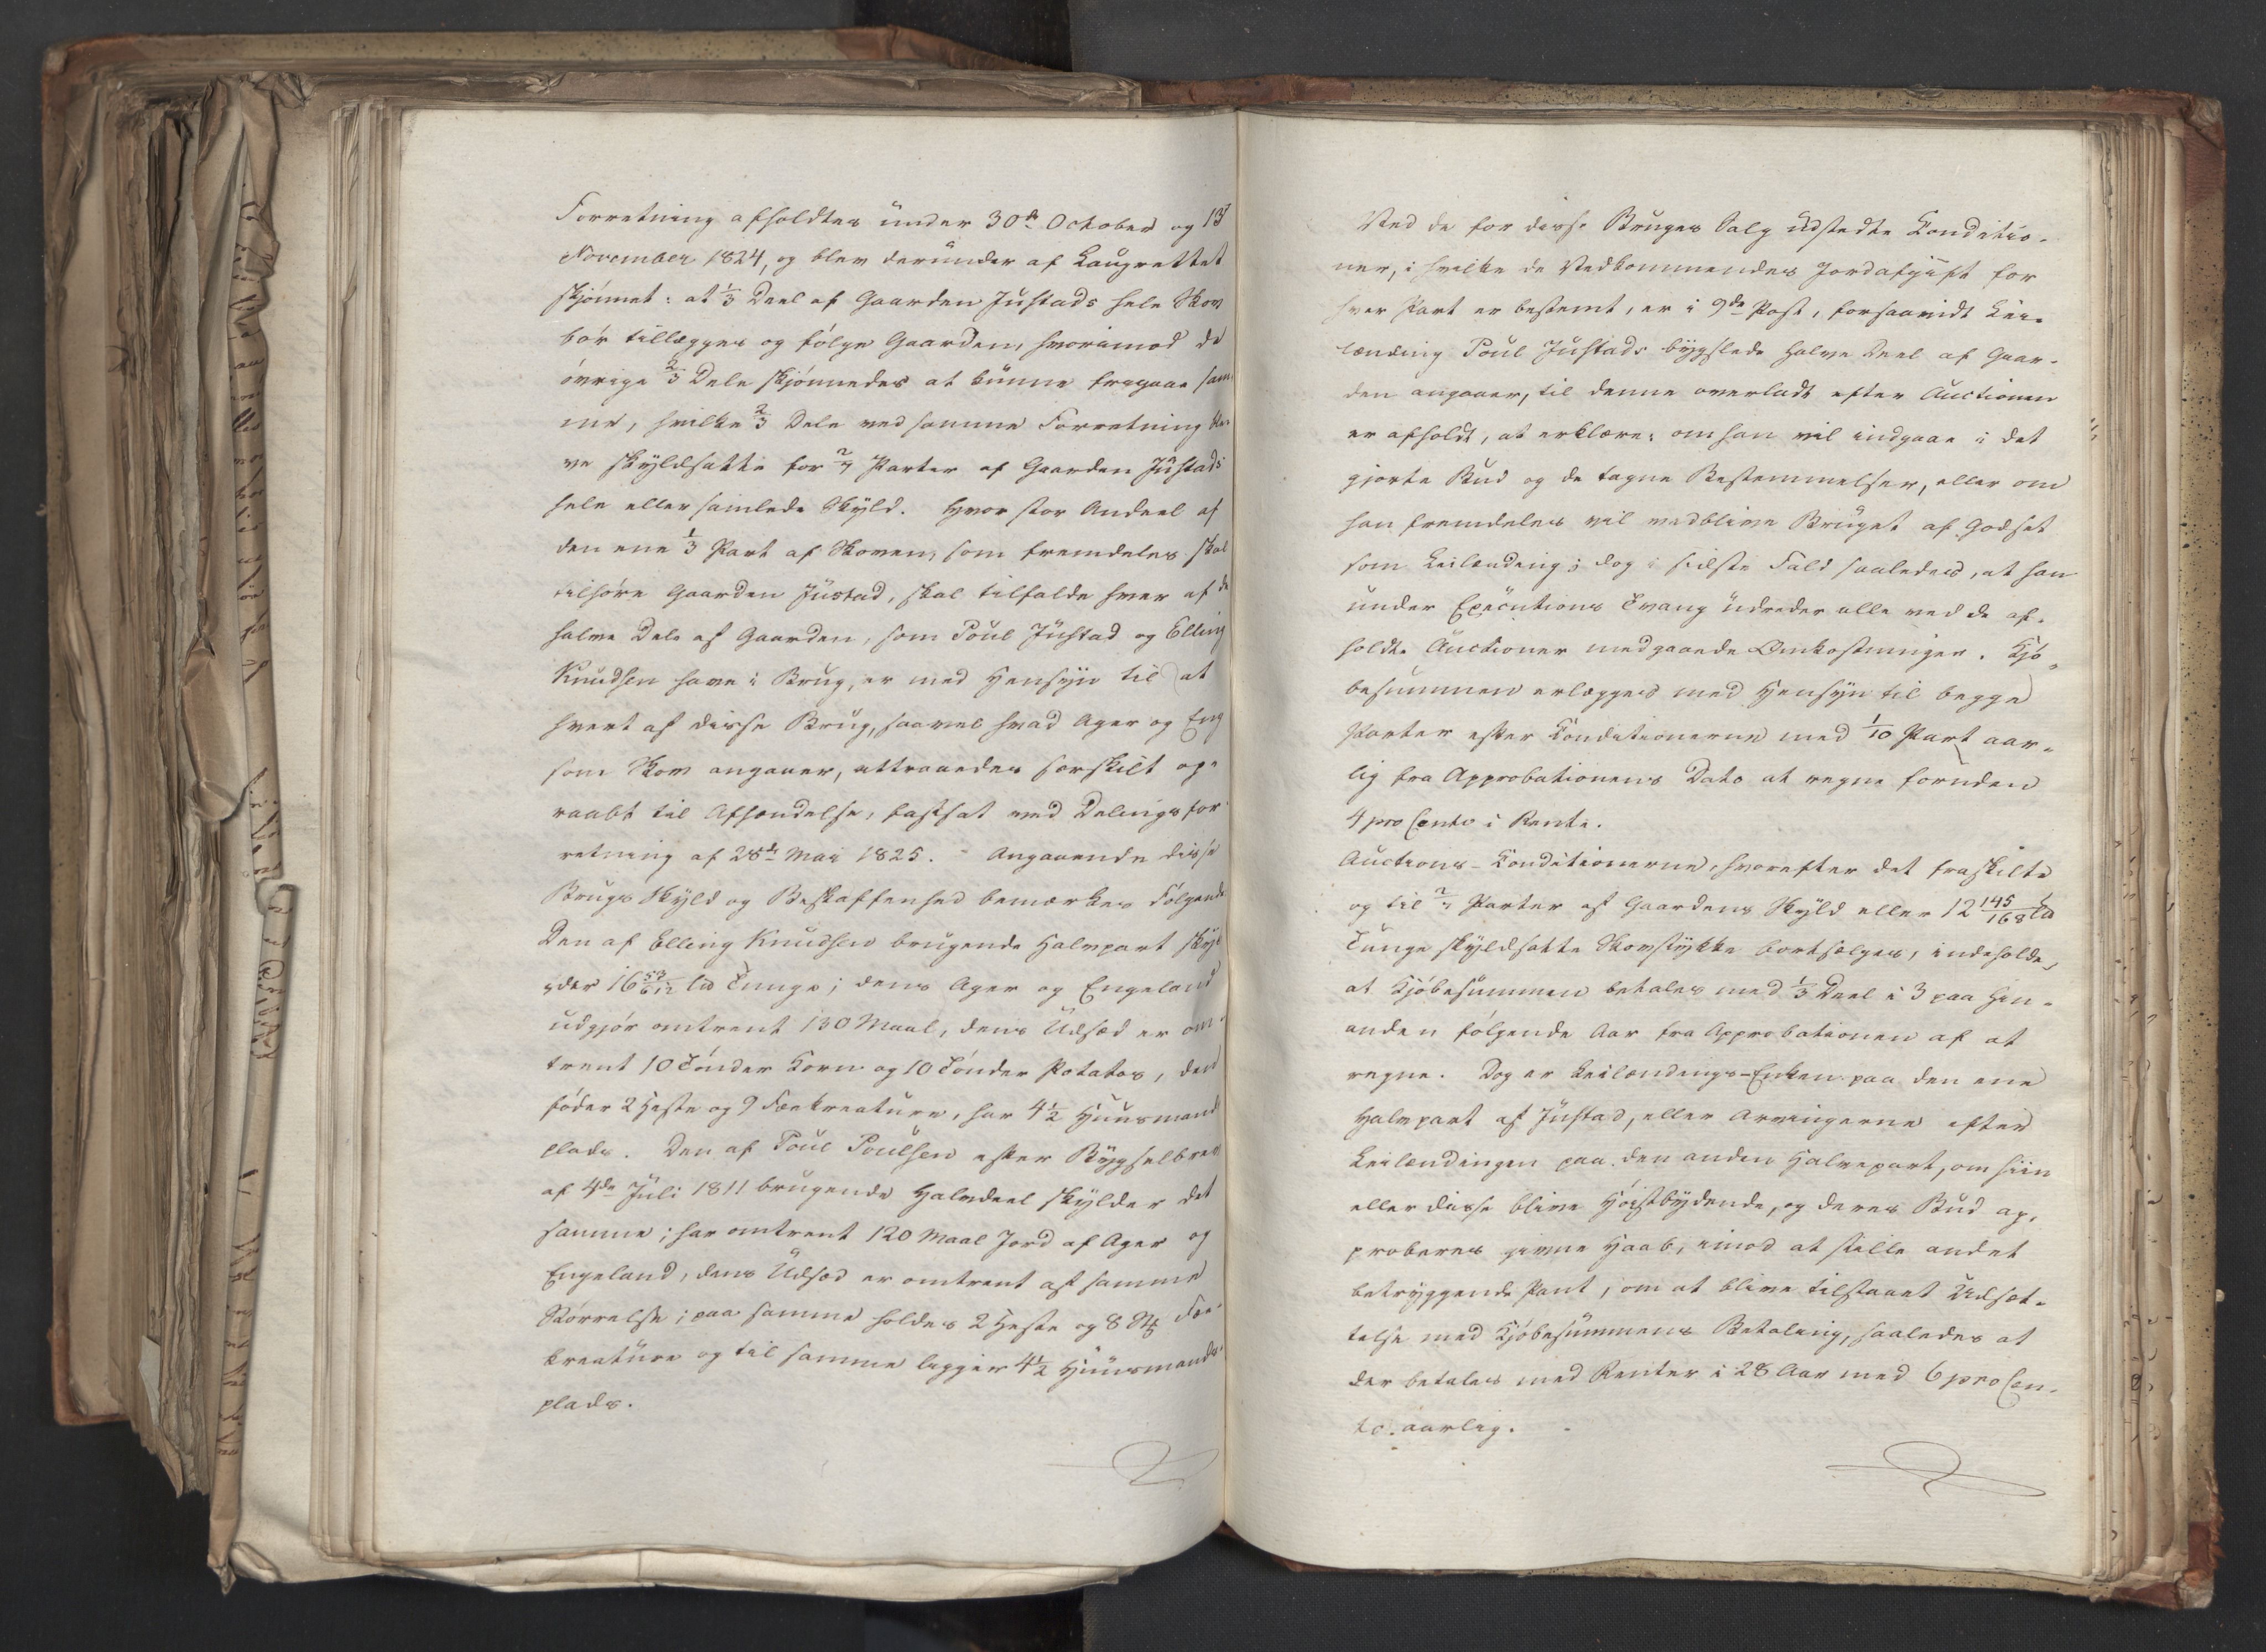 Forretning afholdtes under 30de October og 13de
November 1824, og blev derunder af Laugrettet
skjønnet: at 1/3 Deel af Gaarden Justads hele Skov
bør tillægges og følge Gaarden, hvorimod de
øvrige 2/3 Dele skjønnedes at kunne fragaae sam-
me, hvilke 2/3 Dele ved samme Forretning ble-
ve skyldsatte for 2/7 Parter af Gaarden Justads
hele eller samlede Skyld. Hvor stor Andeel af
den ene 1/3 Part af Skoven, som fremdeles skal
tilhøre Gaarden Justad, skal tilfalde hver af de
halve Dele af Gaarden, som Poul Justad og Elling
Knudsen have i Brug, er med Hensyn til at
hvert af disse Brug, saavel hvad Ager og Eng
som Skov angaaer, attraaedes særskilt op-
raabt til Afhændelse, fastsat ved Delingsfor-
retning af 28de Mai 1825. - Angaaende disse
Brugs Skyld og Beskaffenhed bemærkes Følgende
Den af Elling Knudsen brugende Halvpart skyl-
der 16 53/612 lb Tunge; dens Ager og Engeland
udgjør omtrent 130 Maal, dens Udsæd er om-
trent 10 Tønder Korn og 10 Tønder Potatos, den
føder 2 Heste og 9 Fækreature, har 4 1/2 Huusmands
plads. Den af Poul Poulsen efter Bygselbrev
af 4de Juli 1811 brugende Halvdeel skylder det
samme; har omtrent 120 Maal Jord af Ager og
Engeland, dens Udsæd er omtrent af samme
Størrelse; paa samme holdes 2 Heste og 8 Stk Fæe-
kreature og til samme ligger 4 1/2 Huusmands-
plads.
Ved de for disse Bruges Salg udstedte Conditio-
ner, i hvilke de Vedkommendes Jordafgift for
hver Part er bestemt, er i 9de Post, forsaavidt Lei-
lænding Poul Justads bygslede halve Deel af Gaar-
den angaaer, til denne overladt efter Auctionen
er afholdt, at erklære: om han vil indgaae i det
gjorte Bud og de tagne Bestemmelser, eller om
han fremdeles vil vedblive Bruget af Godset
som Leilænding; dog i sidste Fald saaledes, at han
under Executions Tvang udreder alle ved de af-
holdte Auctioner medgaaede Omkostninger. Kjø-
besummen erlægges med Hensyn til begge
Parter efter Conditionerne med 1/10 Part aar-
lig fra Approbationens Dato at regne foruden
4 pro Cento i Rente.
Auctions-Conditionerne, hvorefter det fraskilte
og til 2/7 Parter af Gaardens Skyld eller 12 145/168 lb
Tunge skyldsatte Skovstykke bortsælges, indeholde,
at Kjøbesummen betales med 1/3 Deel i 3 paa hin-
anden følgende Aar fra Approbationen af at
regne. Dog er Leilændings-Enken paa den ene
Halvpart af Justad, eller Arvingerne efter
Leilændingen paa den anden Halvepart, om hiin
eller disse blive Høistbydende, og deres Bud ap-
proberes givne Haab, imod at stille andet
betryggende Pant, om at blive tilstaaet Udsæt-
telse med Kjøbesummens Betaling, saaledes at
der betales med Renter i 28 Aar med 6 pro Cen-
to aarlig.